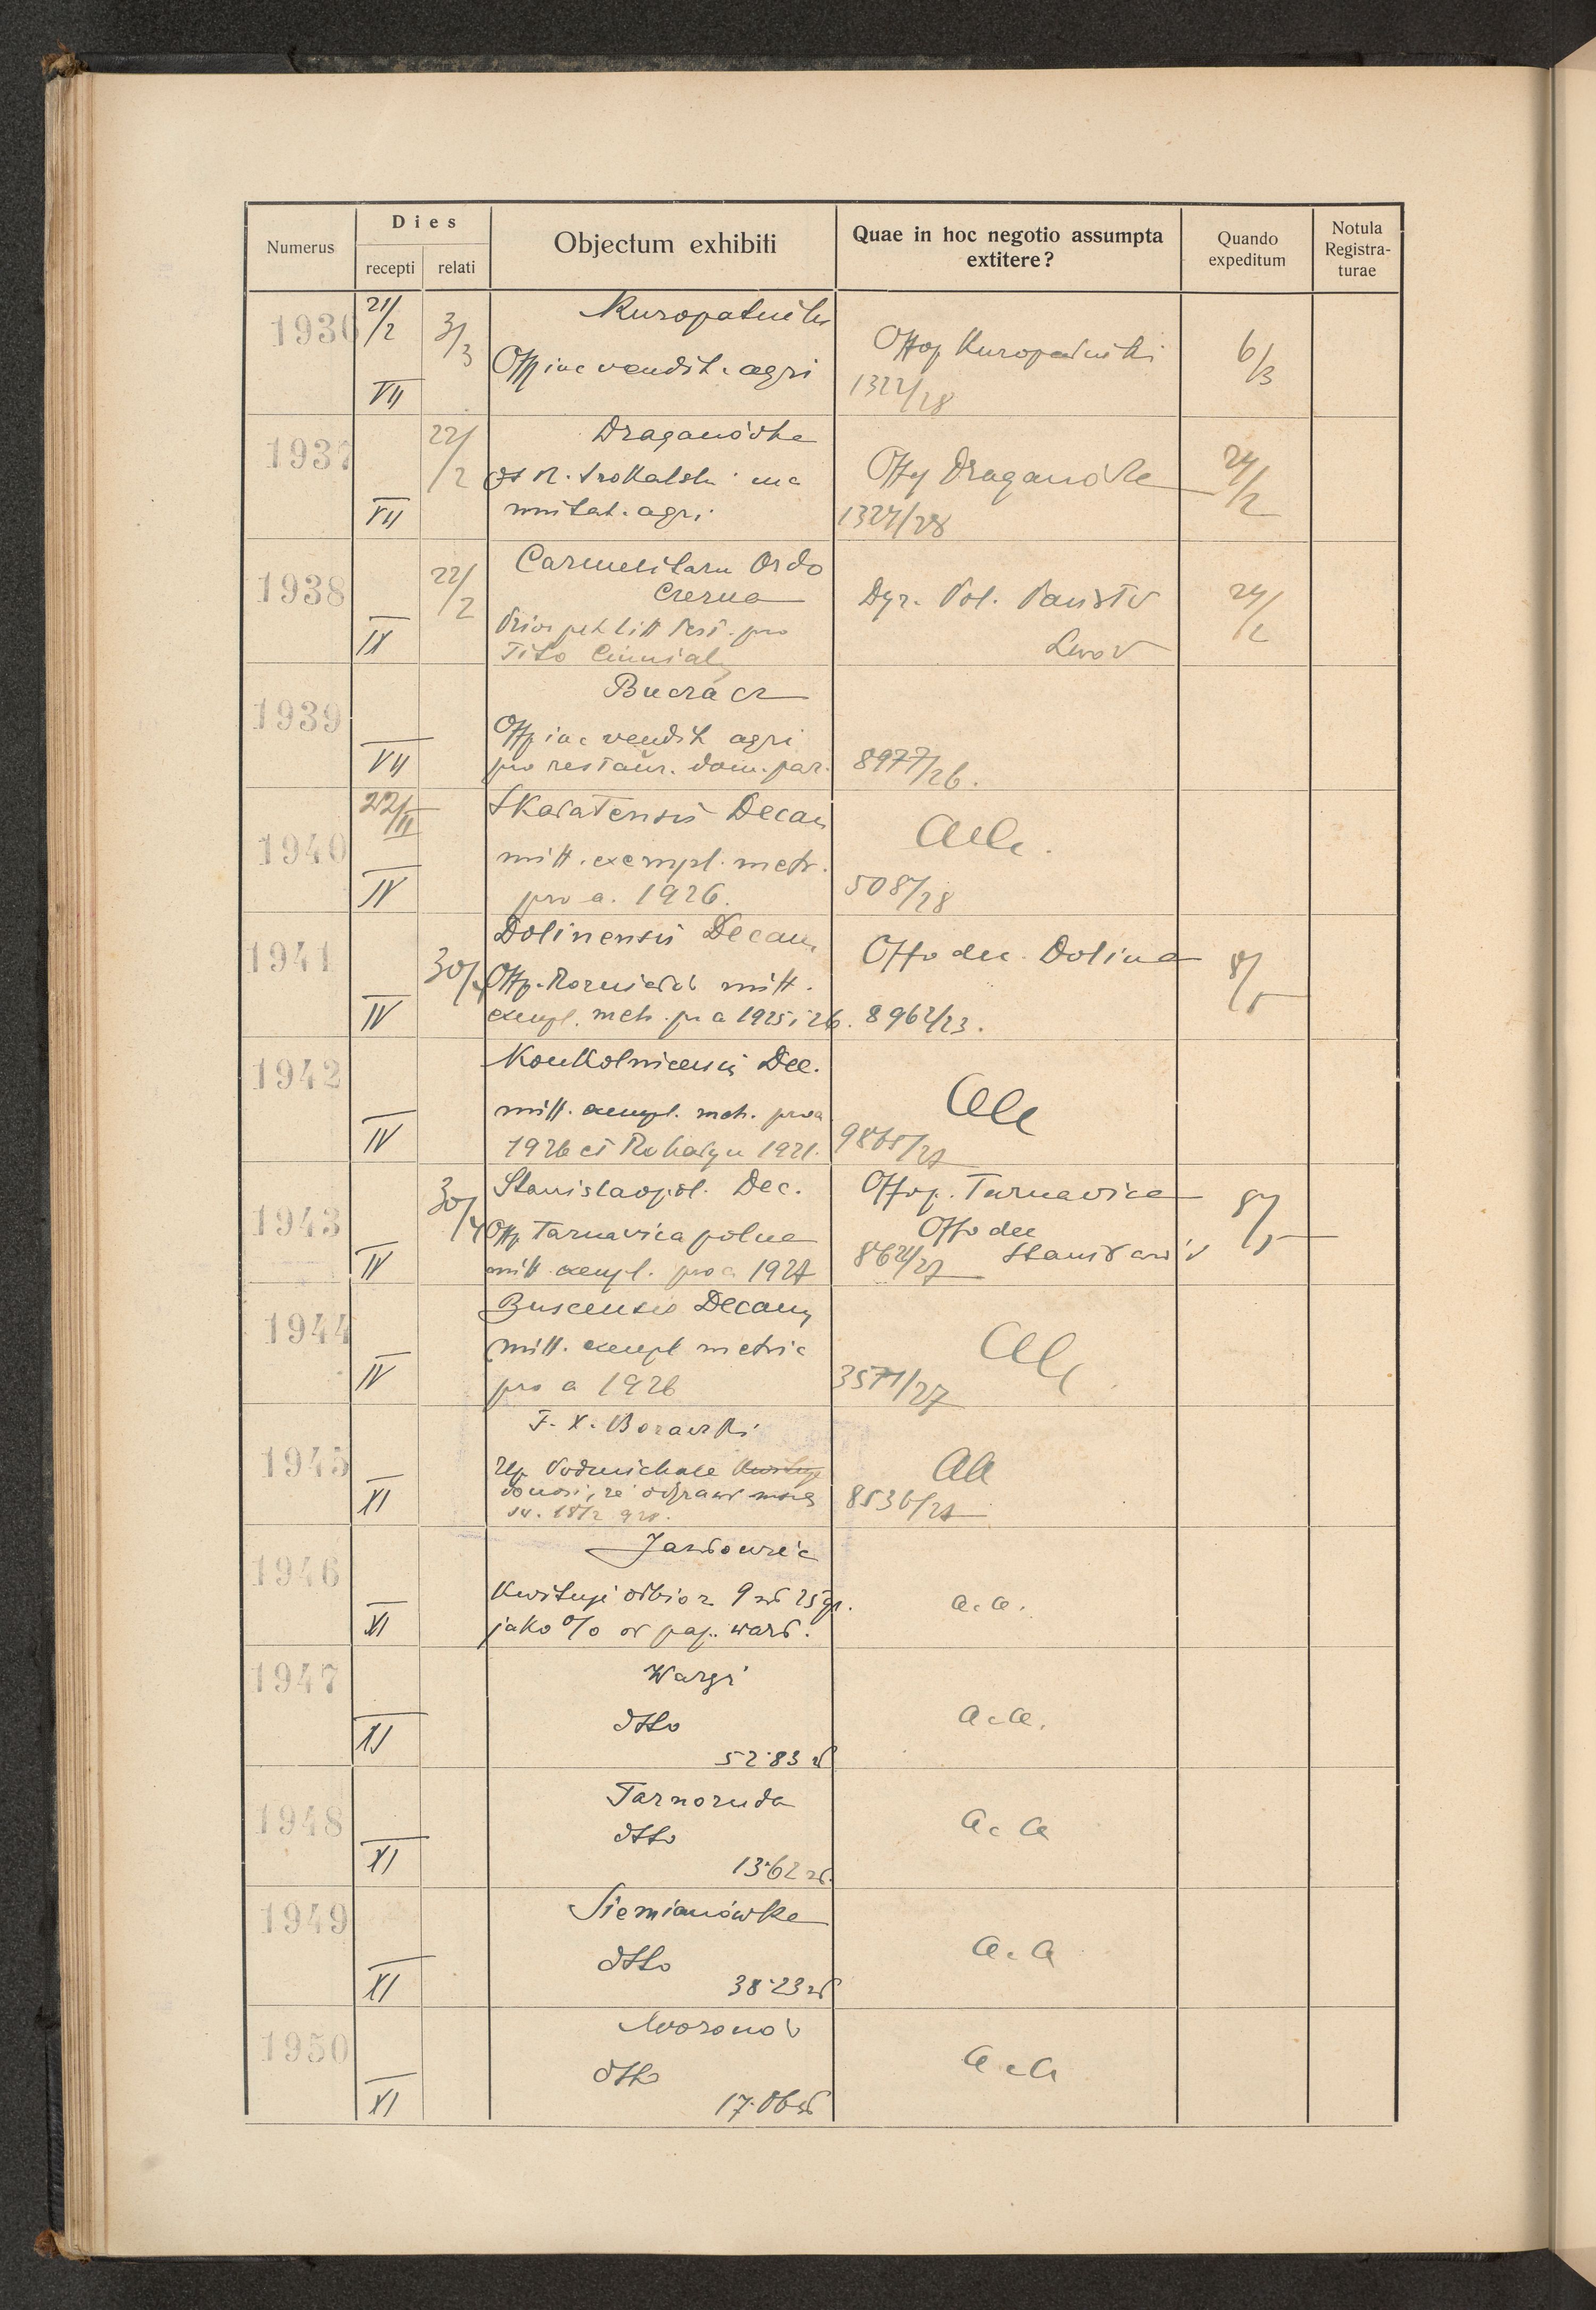 Numerus
Dies
recepti
relati
Objectum exhibiti
Quae in hoc negotio assumpta
extitere?
Quando
expeditum
Notula
Registra-
turae
1936
21/2
3/3
VII
Kuropatniki
Offp in c vendit. agri
Offop Kuropatniki
1322/28
6/3
1937
22/2
VII
Draganówka
mutat. agri
Draganówka
1324/28
24/2
1938
22/2
IX
Carmelitaru Ordo
Czerna
pro
Tito
Dyr. Pol. Państw
Lwów
24/2
1939
VII
Buczacz
Offp in c vendit agri
pro restaur. dom. par.
8977/26.
1940
22/II
IV
Skałatensis Decan
mitt. exempl. metr.
pro a. 1926.
508/28
1941
30/4
IV
Dolinensis Decan
Offp. Rożniatów mitt.
exempl. metr. pr a 1925 i 26.
Offo dec. Dolina
8962/23.
8/5
1942
IV
Konkolnicensis Dec.
mitt. exempl. metr. pro a
1926 et Rohatyn 1921.
9865/27
1943
30/4
IV
Stanislaopol. Dec.
Offp Tarnavica polna
mitt exempl. pro a 1927
Offop. Tarnavica
Offo dec
Stanisławów
862/27
8/5
1944
IV
Buscensis Decan
mitt. exempl metric
pro a 1926
3571/27
1945
XI
F. X. Borawski
Podmichale
donosi, że odprawił
św. 18/2 928.
aa
8536/27
1946
XI
Jazłowiec
Kwituje odbiór 9 zł 25 gr.
jako % od pap. wart.
a. a.
1947
XI
Waręż
dtto
52·83 zł
a a.
1948
XI
Tarnoruda
dtto
13·62 zł.
a. a
1949
XI
Siemianówka
dtto
38·23 zł
a. a
1950
XI
Woronów
dtto
17·06 zł
a a